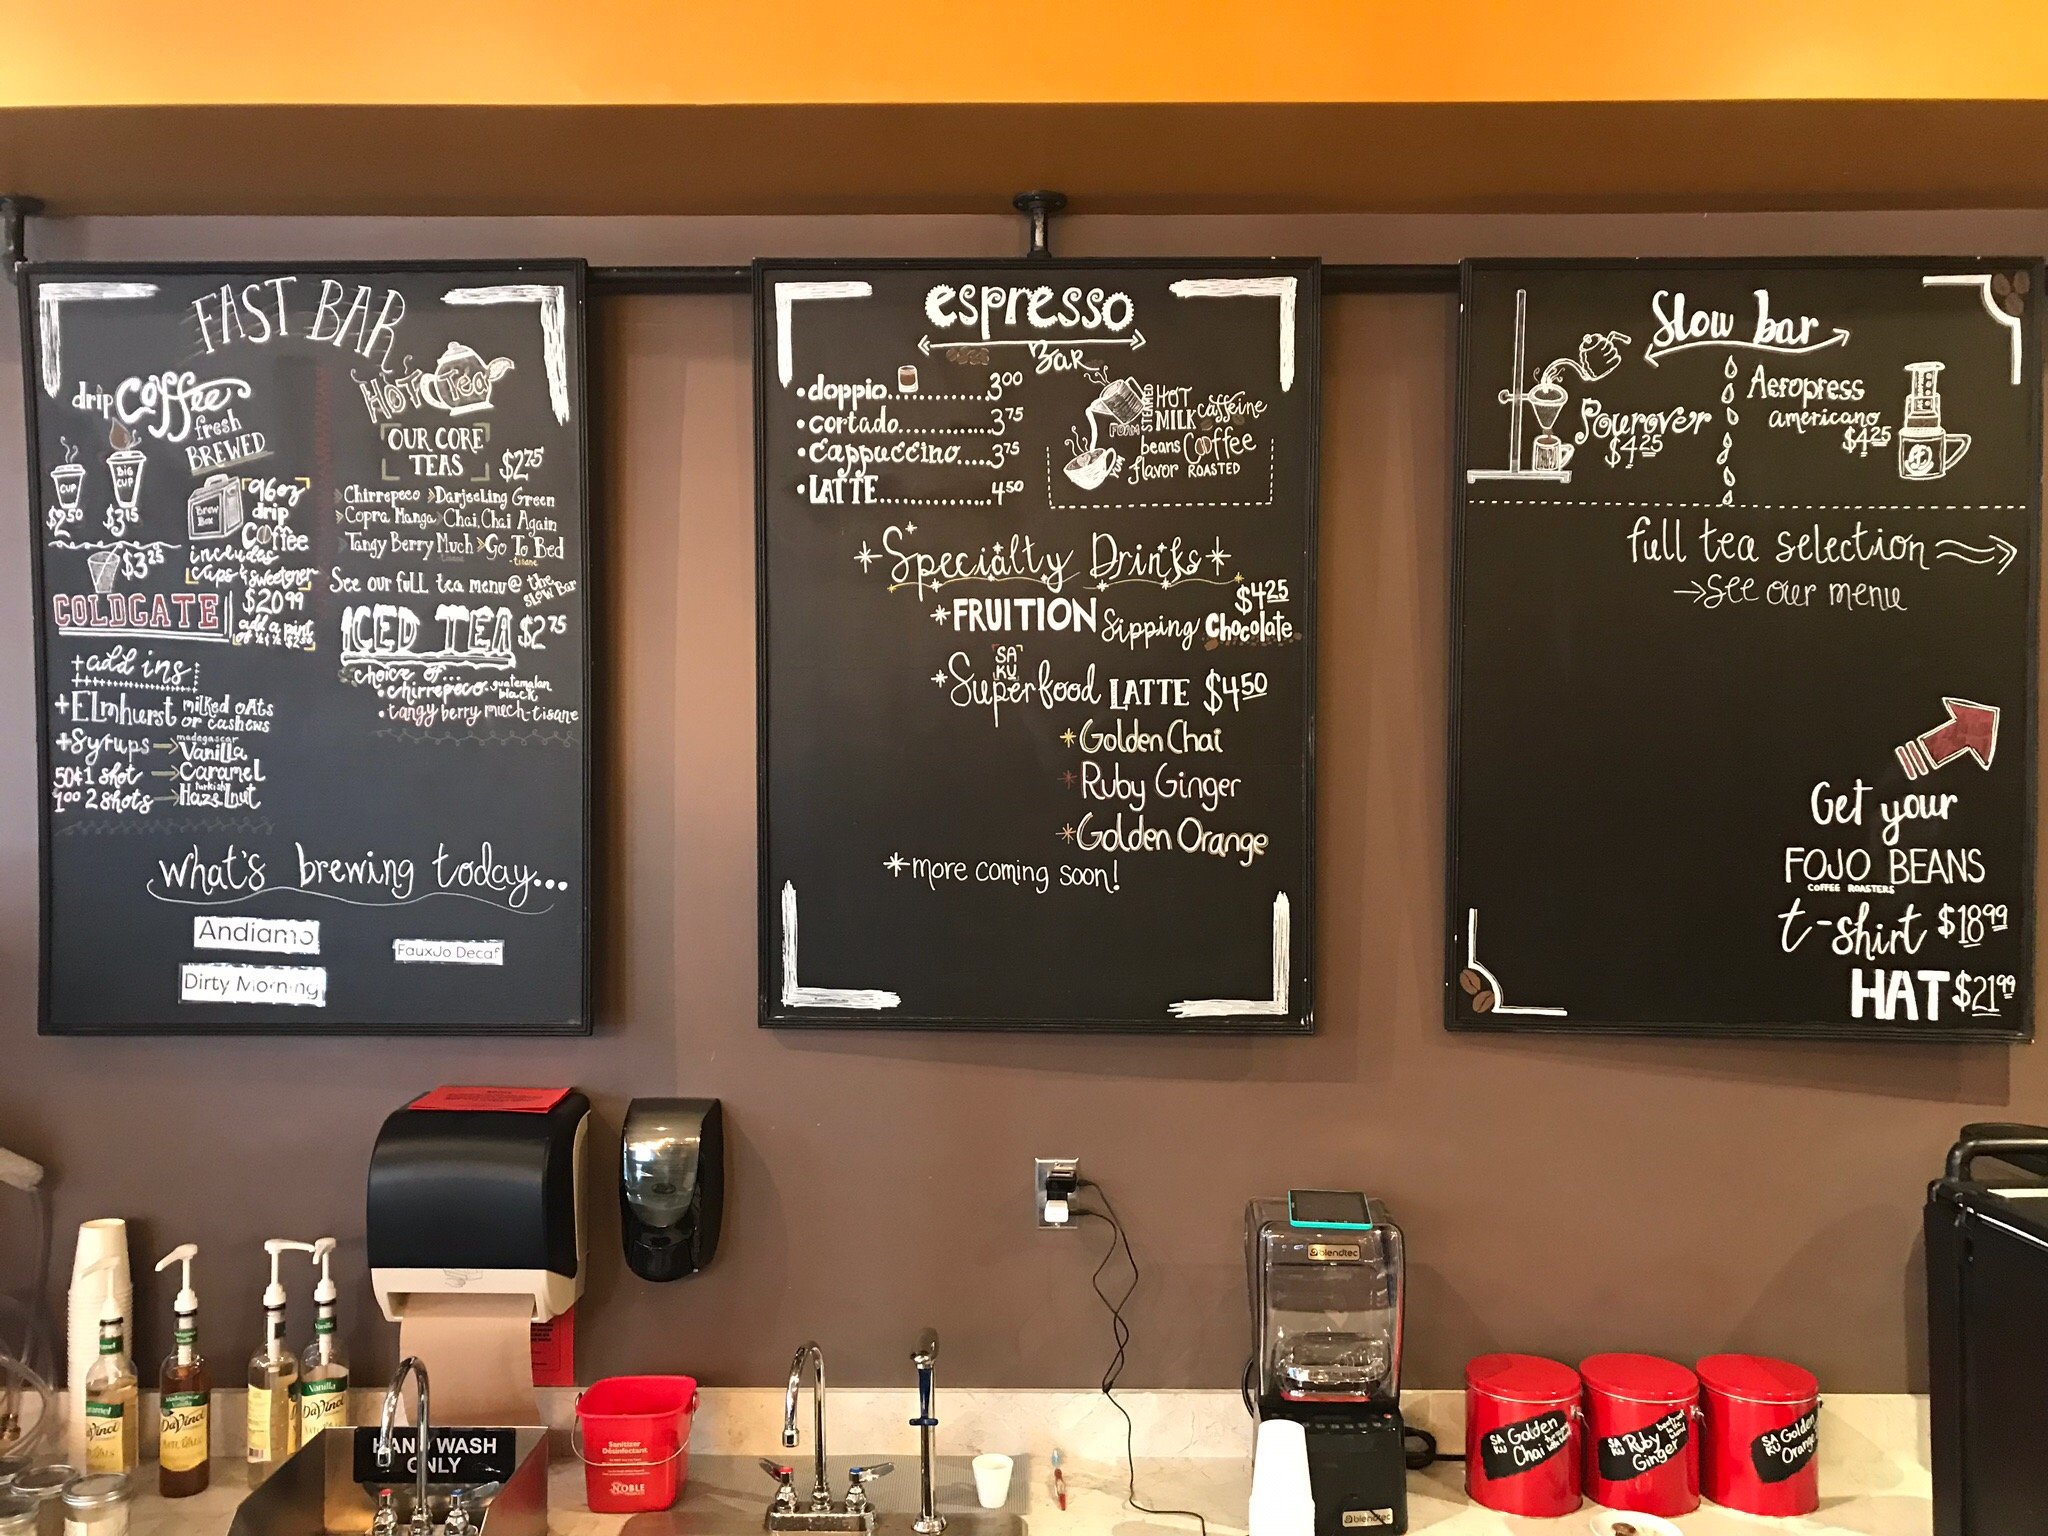 FAST BAR
drip Coffee
fresh
BREWED
CUP
BIG
CUP
$2.50
$3.15
Brew
Box
96oz
drip
Coffee
includes
cups & sweetener
$20.99
add a pint
$3.25
COLDGATE
+add ins
+ELmhurst milked oAts
or cashews
+Syrups → madagascar
Vanilla
50¢ 1 shot → CarameL
1.00 2 shots → turkish
HazeLnut
HOT Tea
OUR CORE
TEAS
$2.75
Chirrepeco DarjeeLing Green
Copra Manga Chai, Chai Again
Tangy Berry Much Go To Bed
tisane
See our full tea menu @ the
SLOW Bar
ICED TEA $2.75
choice of...
• chirrepeco - guatemalan
black
• tangy berry much-tisane
what's brewing today...
Andiamo
FauxJo Decaf
Dirty Morning
espresso
Bar
• doppio............. 3.00
• cortado............ 3.75
• Cappuccino..... 3.75
• LATTE............... 4.50
STEAMED
HOT
MILK caffeine
FOAM
beans Coffee
flavor ROASTED
YUM
*Specialty Drinks*
$4.25
*FRUITION Sipping Chocolate
SA
KU
*Superfood LATTE $4.50
*Golden Chai
*Ruby Ginger
*Golden Orange
*more coming soon!
Slow bar
Pourover
$4.25
Aeropress
americano
$4.25
full tea selection
→ see our menu
Get your
FOJO BEANS
COFFEE ROASTERS
t-shirt $18.99
HAT $21.99
Madagascar
Vanilla
DaVinci
Vanilla
DaVinci
HAND WASH
ONLY
Sanitizer
Disinfectant
NOBLE
blendtec
blendtec
SA
KU
Golden
Chai
SA
KU
Ruby
Ginger
SA
KU
Golden
Orange